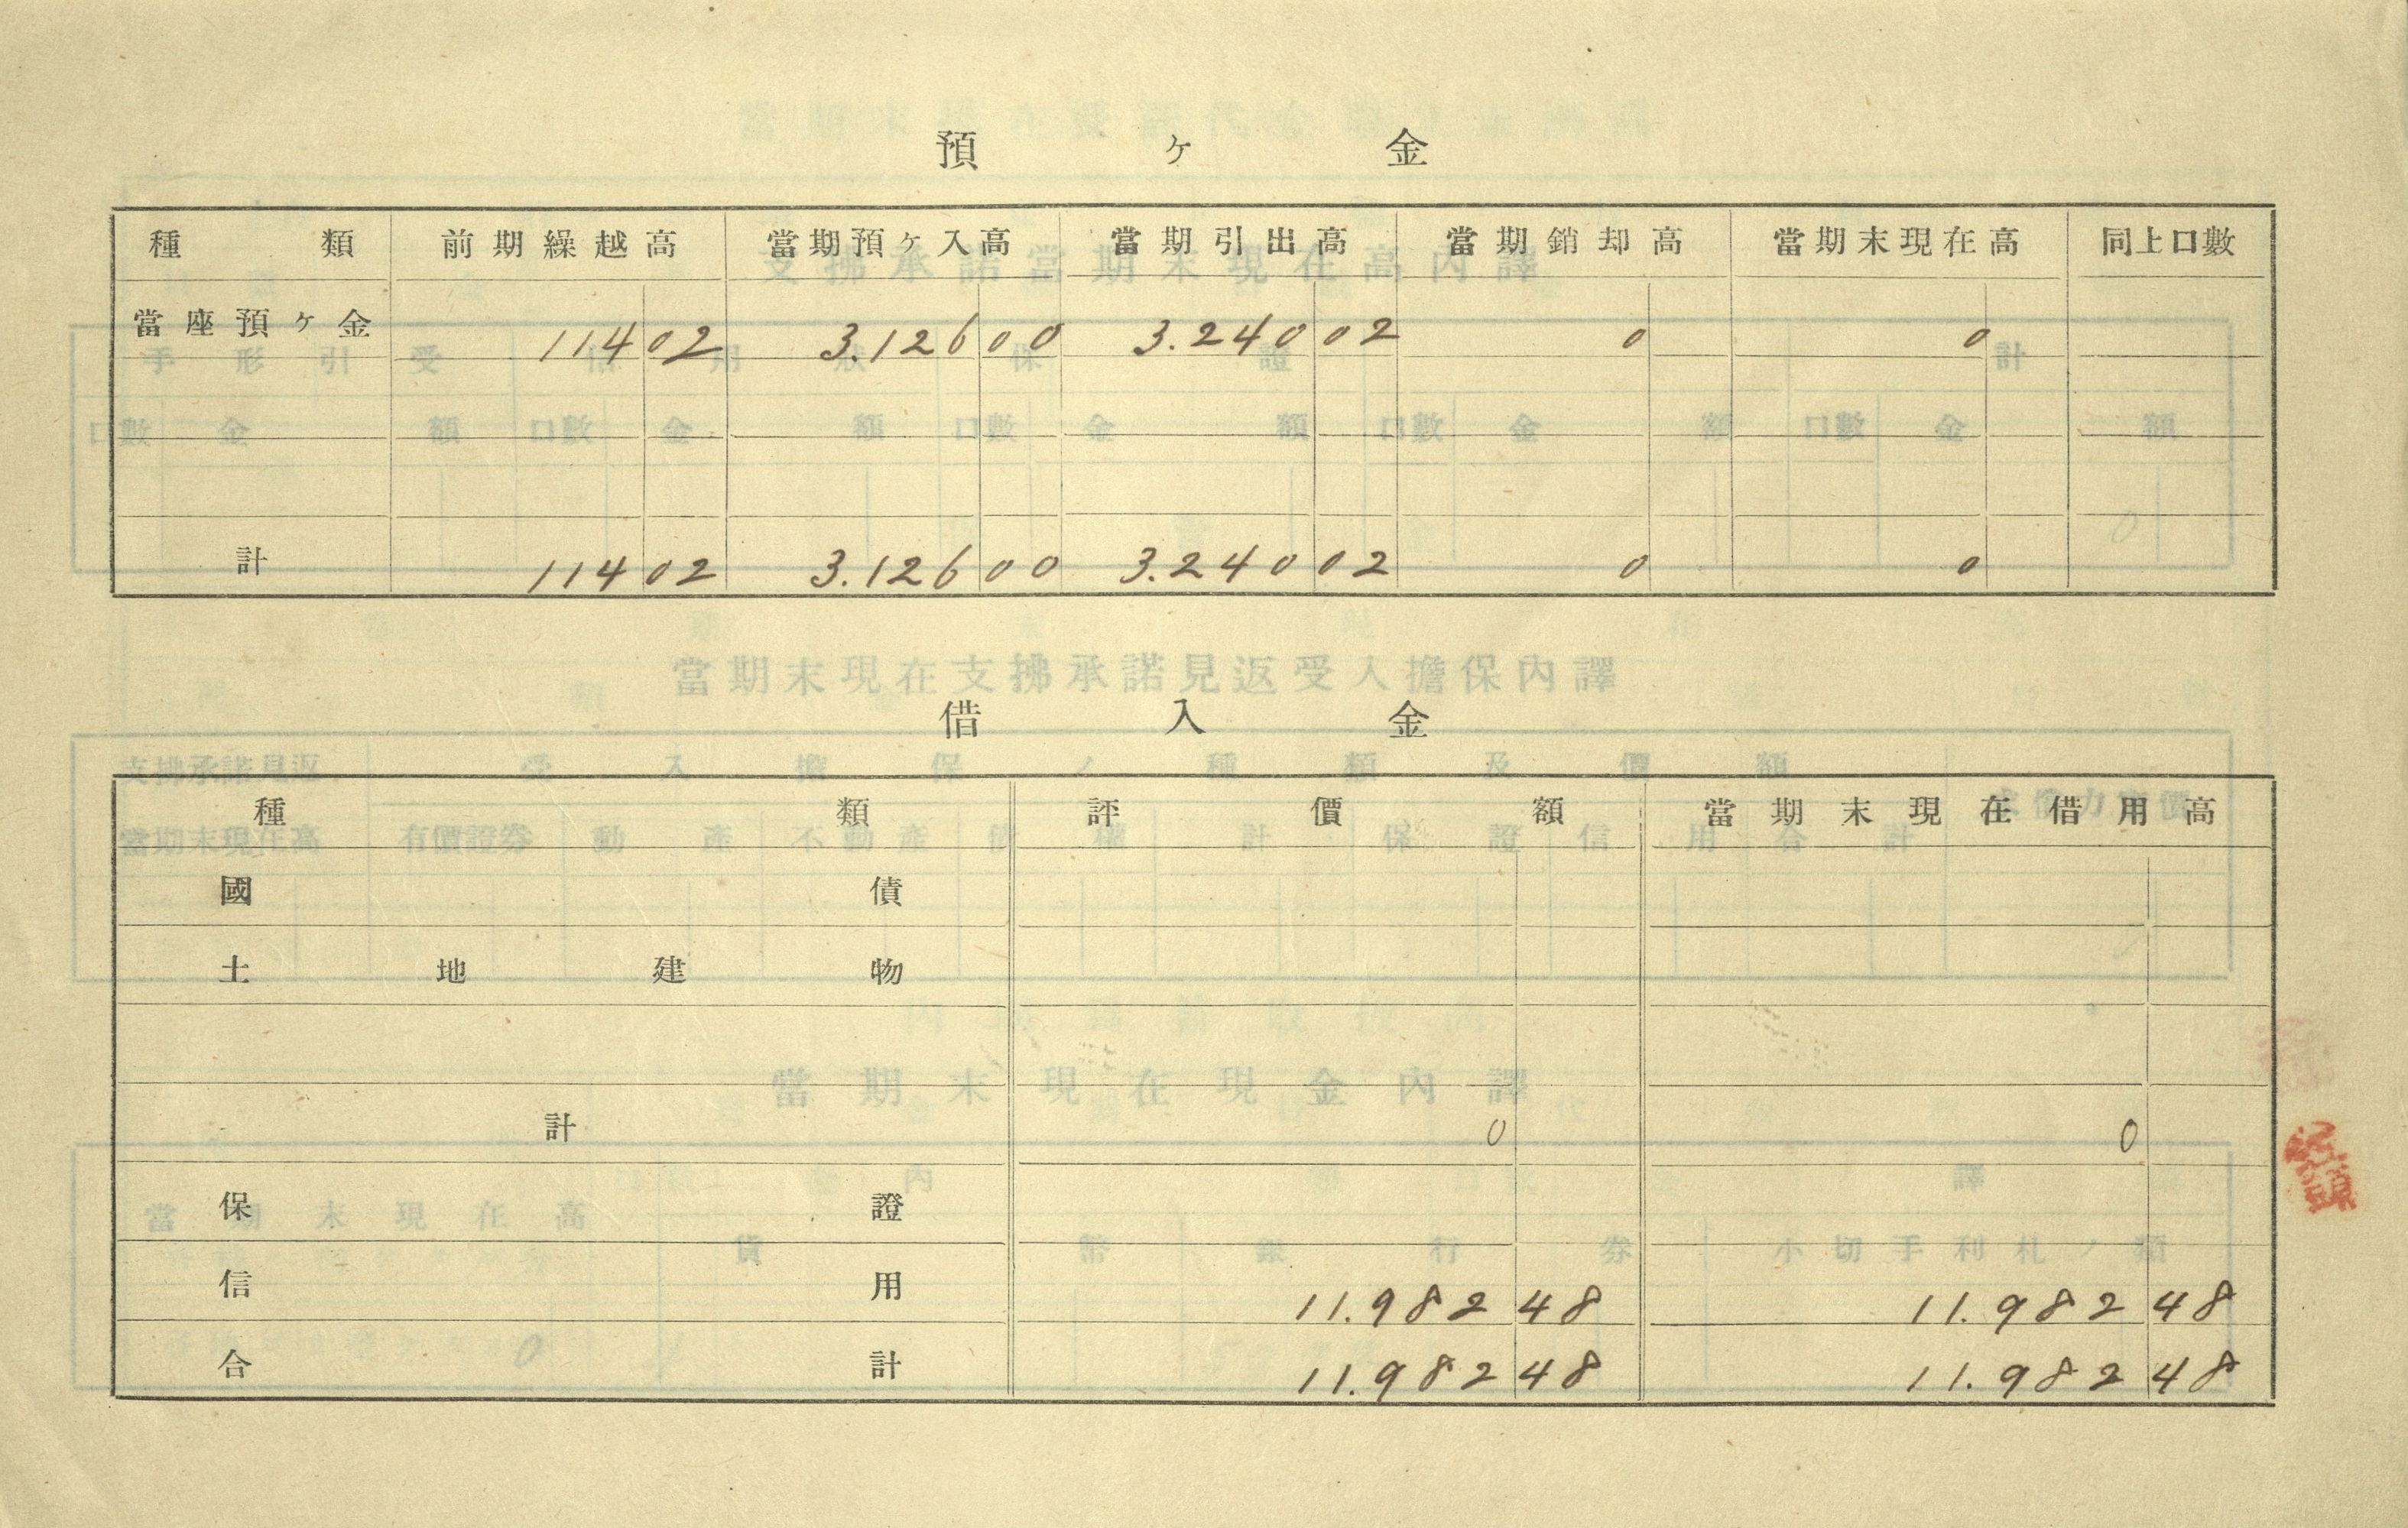 預ヶ金
種類 前期繰越高 當期預ヶ入高 當期引出高 當期銷却高 當期末現在高 同上口數
當座預ヶ金 114 02 3.126 00 3.240 02 0 0
計 114 02 3.126 00 3.240 02 0 0
借入金
種類 評價額 當期末現在借用高
國債
土地建物
計 0 0
保證
信用 11.982 48 11.982 48
合計 11.982 48 11.982 48